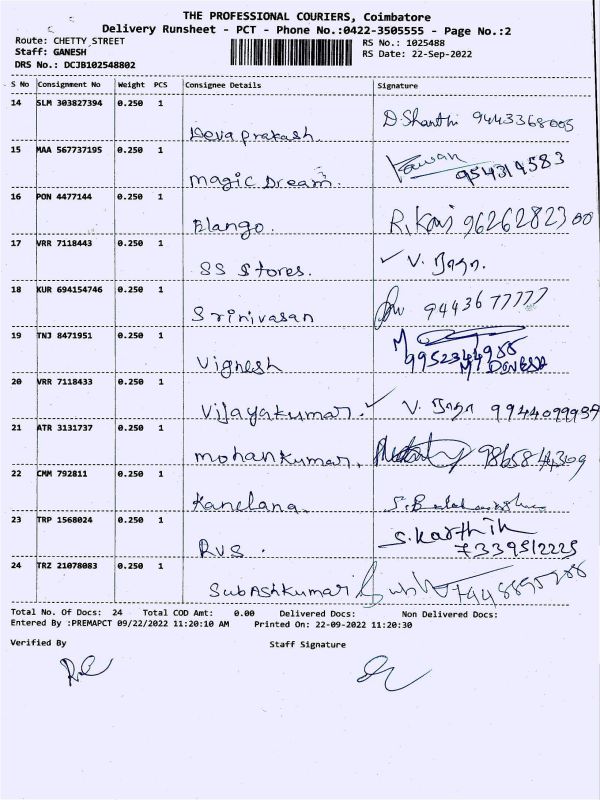 THE PROFESSIONAL COURIERS, Coimbatore
Delivery Runsheet - PCT - Phone No.:0422-3505555 - Page No.:2
Route: CHETTY STREET RS No.: 1025488
Staff: GANESH RS Date: 22-Sep-2022
DRS No.: DCJB102548802
S No Consignment No Weight PCS Consignee Details Signature
14 SLM 303827394 0.250 1 Devaprakash. D.Shanthi 9443368005
15 MAA 567737195 0.250 1 Magic Dream.
16 PON 4477144 0.250 1 Elango. 9626282300
17 VRR 7118443 0.250 1 SS Stores. V. ராஜா.
18 KUR 694154746 0.250 1 Srinivasan 9443677777
19 TNJ 8471951 0.250 1 Vignesh
20 VRR 7118433 0.250 1 Vijayakumar. V. ராஜா
21 ATR 3131737 0.250 1 Mohankumar.
22 CMM 792811 0.250 1 Kanelana.
23 TRP 1568024 0.250 1 RVS. S.Karthik
7339512225
24 TRZ 21078083 0.250 1 SubAshkumar
Total No. Of Docs: 24 Total COD Amt: 0.00 Delivered Docs: Non Delivered Docs:
Entered By :PREMAPCT 09/22/2022 11:20:10 AM Printed On: 22-09-2022 11:20:30
Verified By Staff Signature